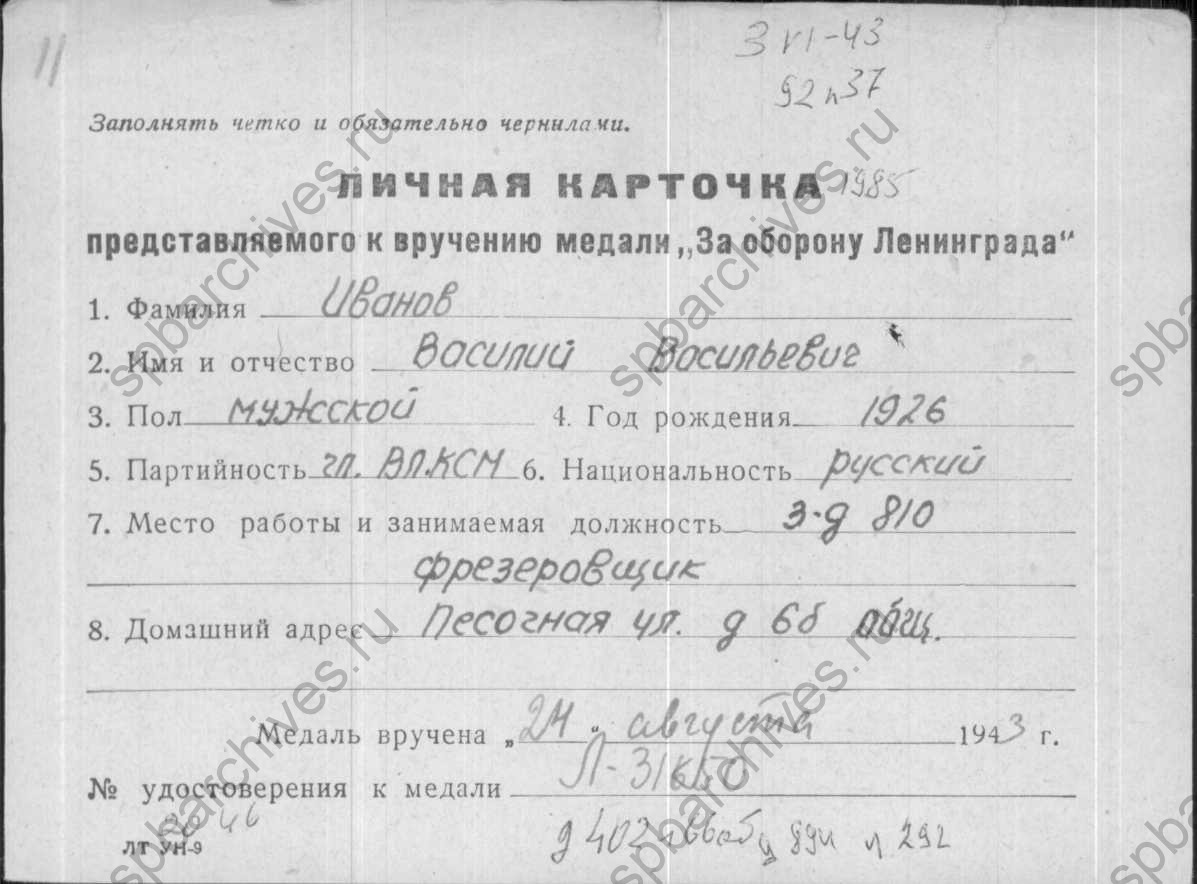 11
3 VI-43
92 п 37
Заполнять четко и обязательно чернилами.
ЛИЧНАЯ КАРТОЧКА 1985
представляемого к вручению медали „За оборону Ленинграда“
1. Фамилия Иванов
2. Имя и отчество Василий Васильевич
3. Пол мужской 4. Год рождения 1926
5. Партийность чл. ВЛКСМ 6. Национальность русский
7. Место работы и занимаемая должность з-д 810
фрезеровщик
8. Домашний адрес Песочная ул. д 6б общ.
Медаль вручена „24“ августа 1943 г.
№ удостоверения к медали
2046
ЛТ УН-9
д 402 л 292
spbarchives.ru
spbarchives.ru